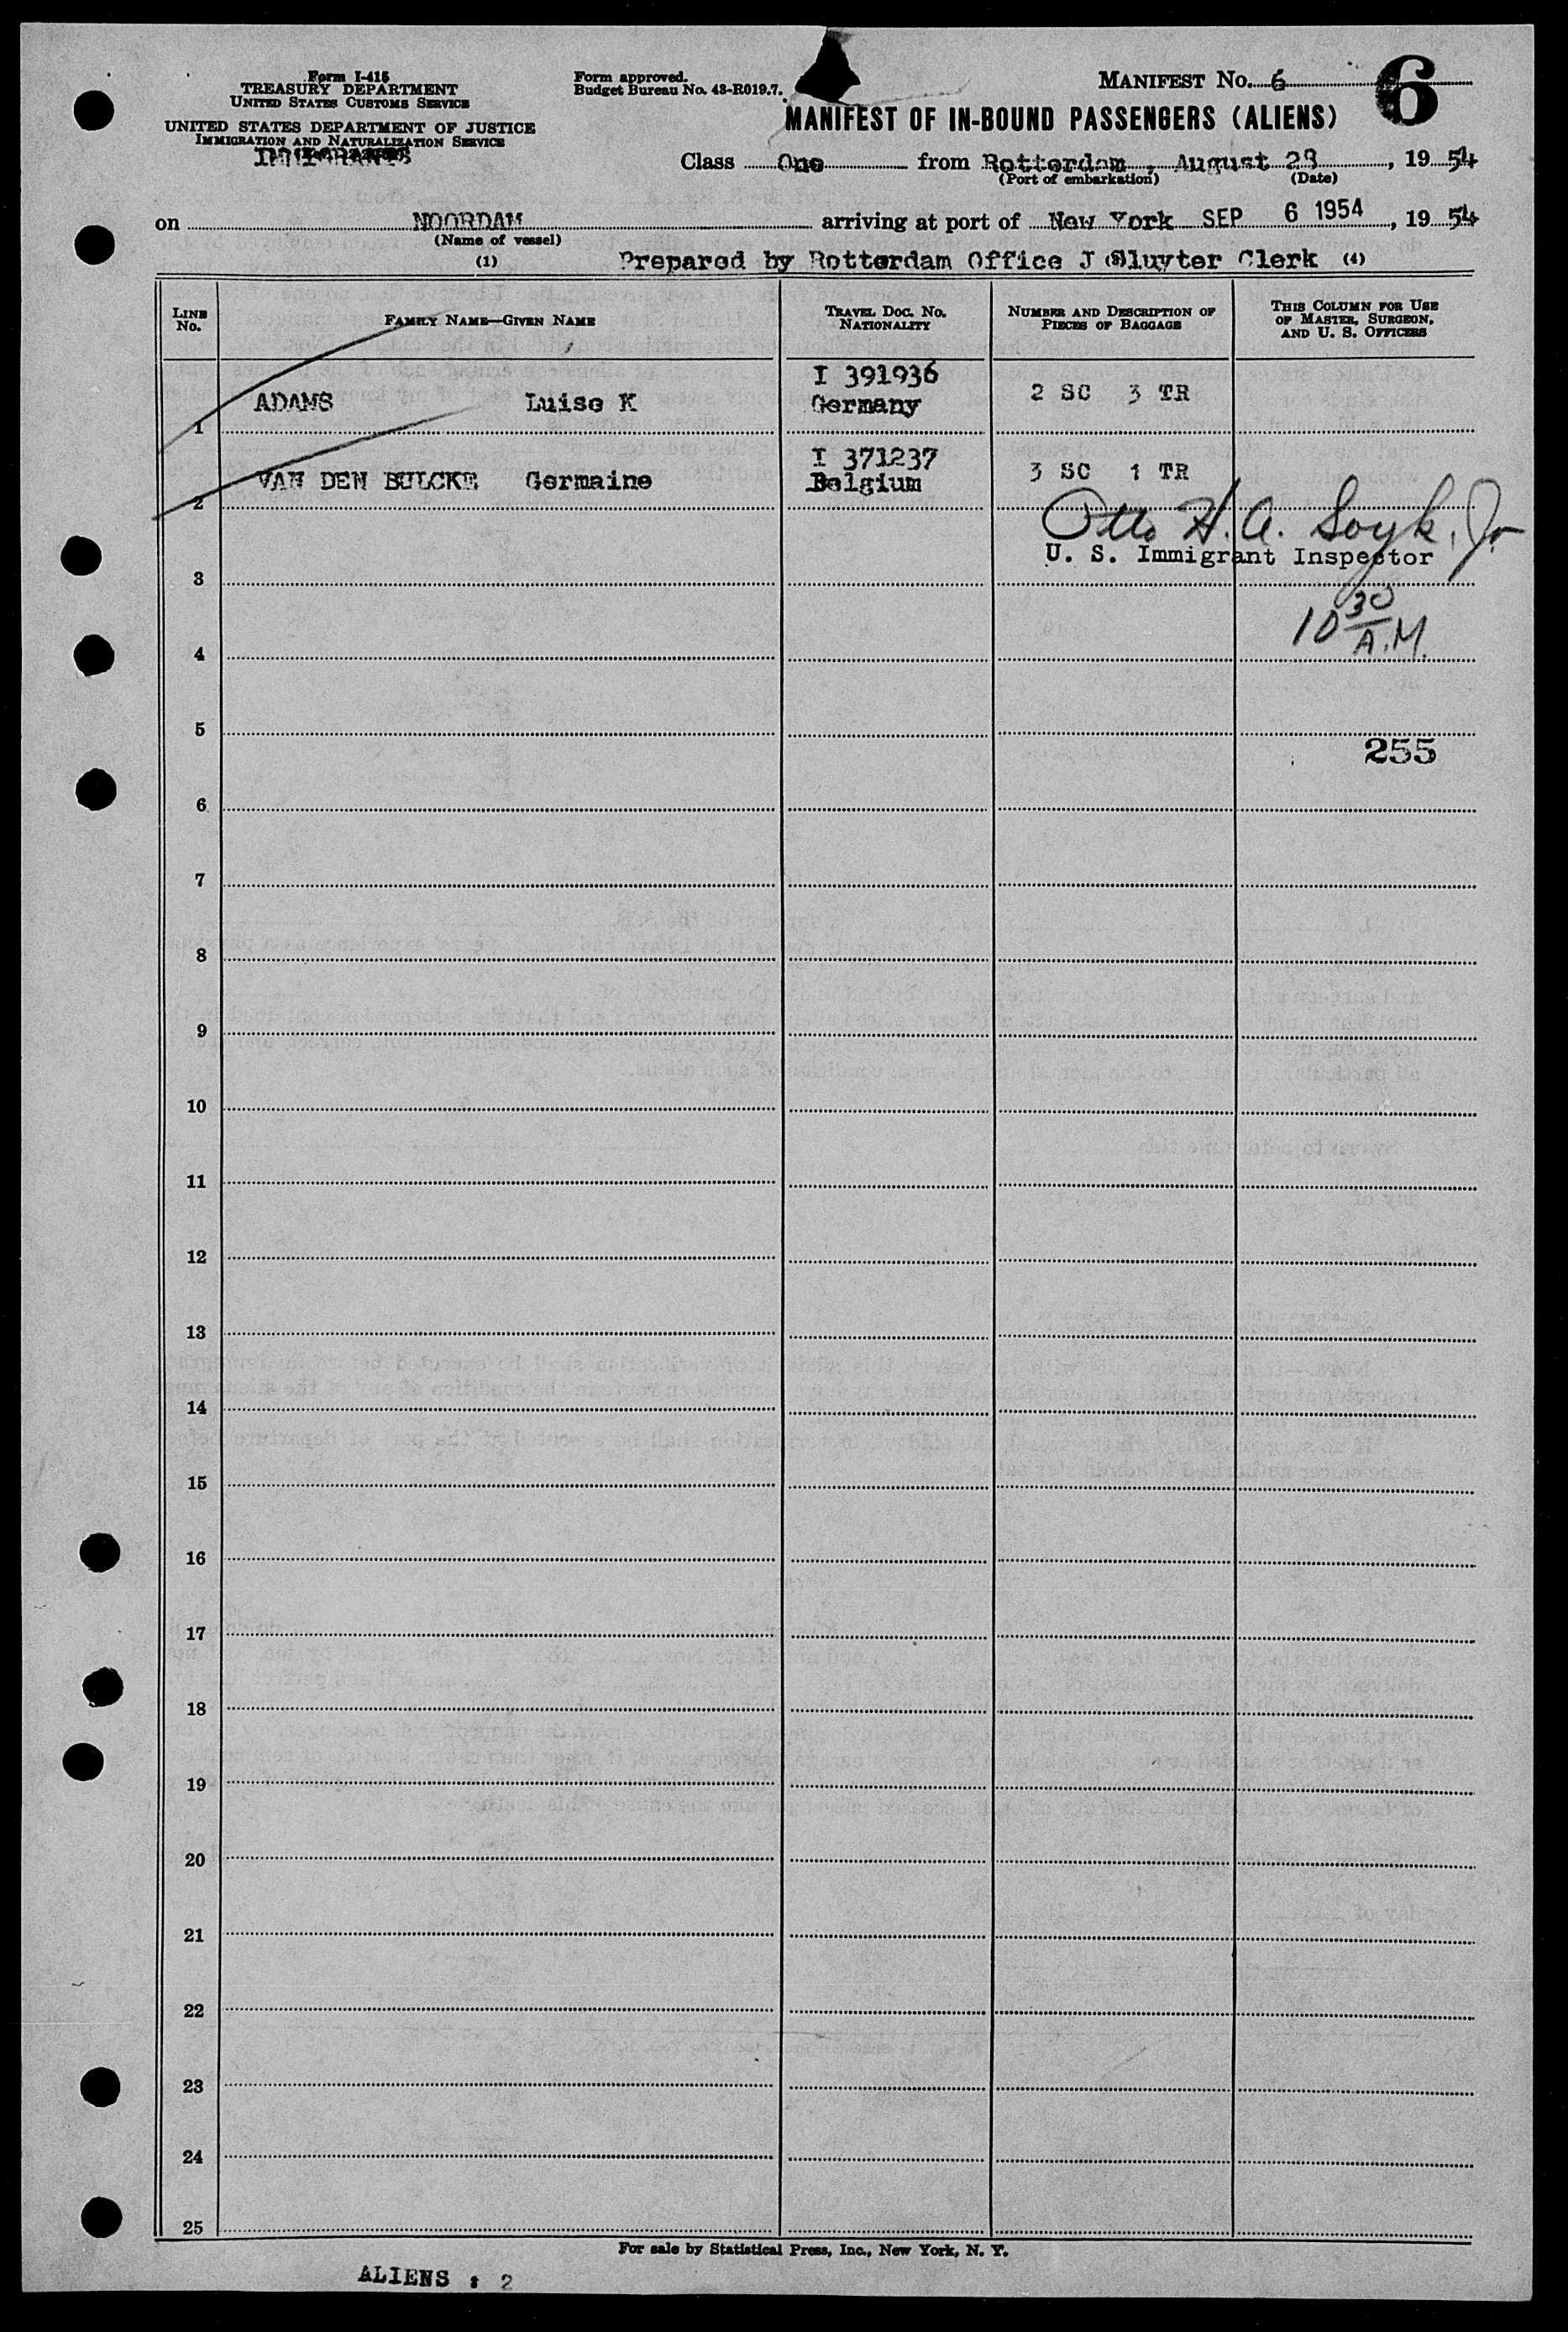 Form I-415
TREASURY DEPARTMENT
UNITED STATES CUSTOMS SERVICE
UNITED STATES DEPARTMENT OF JUSTICE
IMMIGRATION AND NATURALIZATION SERVICE
Form approved.
Budget Bureau No. 43-R019.7.
MANIFEST No. 6
6
MANIFEST OF IN-BOUND PASSENGERS (ALIENS)
Class One from Rotterdam, August 28, 19 54
(Port of embarkation) (Date)
on NOORDAM arriving at port of New York SEP 6 1954, 19 54
(Name of vessel)
(1) Prepared by Rotterdam Office J Sluyter Clerk (4)
LINE No. FAMILY NAME—GIVEN NAME TRAVEL DOC. No. NATIONALITY NUMBER AND DESCRIPTION OF PIECES OF BAGGAGE THIS COLUMN FOR USE OF MASTER, SURGEON, AND U. S. OFFICERS
I 391936
1 ADAMS Luise K Germany 2 SC 3 TR
I 371237
2 VAN DEN BULCKE Germaine Belgium 3 SC 1 TR
Otto H. A. Soyk, Jr.
U. S. Immigrant Inspector
3
10 30 A.M.
4
5
255
6
7
8
9
10
11
12
13
14
15
16
17
18
19
20
21
22
23
24
25
For sale by Statistical Press, Inc., New York, N. Y.
ALIENS : 2